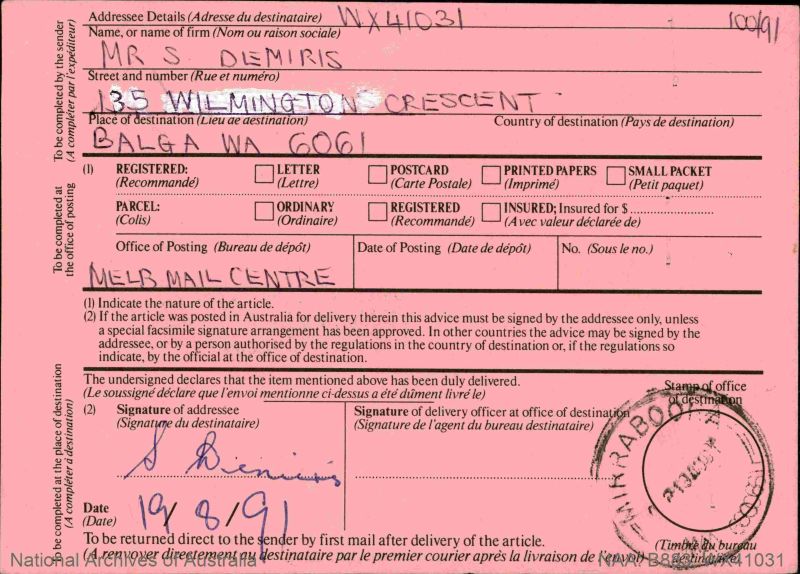 Addressee Details (Adresse du destinataire) WX41031 100/91
Name, or name of firm (Nom ou raison sociale)
MR S DEMIRIS
Street and number (Rue et numéro)
135 WILMINGTON CRESCENT
Place of destination (Lieu de destination) Country of destination (Pays de destination)
BALGA WA 6061
To be completed by the sender
(A compléter par l'expéditeur)
(1) REGISTERED: LETTER POSTCARD PRINTED PAPERS SMALL PACKET
(Recommandé) (Lettre) (Carte Postale) (Imprimé) (Petit paquet)
PARCEL: ORDINARY REGISTERED INSURED; Insured for $
(Colis) (Ordinaire) (Recommandé) (Avec valeur déclarée de)
Office of Posting (Bureau de dépôt) Date of Posting (Date de dépôt) No. (Sous le no.)
MELB MAIL CENTRE
To be completed at
the office of posting
(1) Indicate the nature of the article.
(2) If the article was posted in Australia for delivery therein this advice must be signed by the addressee only, unless
a special facsimile signature arrangement has been approved. In other countries the advice may be signed by the
addressee, or by a person authorised by the regulations in the country of destination or, if the regulations so
indicate, by the official at the office of destination.
The undersigned declares that the item mentioned above has been duly delivered.
(Le soussigné déclare que l'envoi mentionne ci-dessus a été dûment livré le)
Stamp of office
of destination
(2) Signature of addressee Signature of delivery officer at office of destination
(Signature du destinataire) (Signature de l'agent du bureau destinataire)
S Demiris
MIRRABOOKA
Date
(Date) 19/8/91
To be completed at the place of destination
(A compléter à destination)
To be returned direct to the sender by first mail after delivery of the article. (Timbre du bureau
(A renvoyer directement au destinataire par le premier courier après la livraison de l'envoi) destinataire)
National Archives of Australia